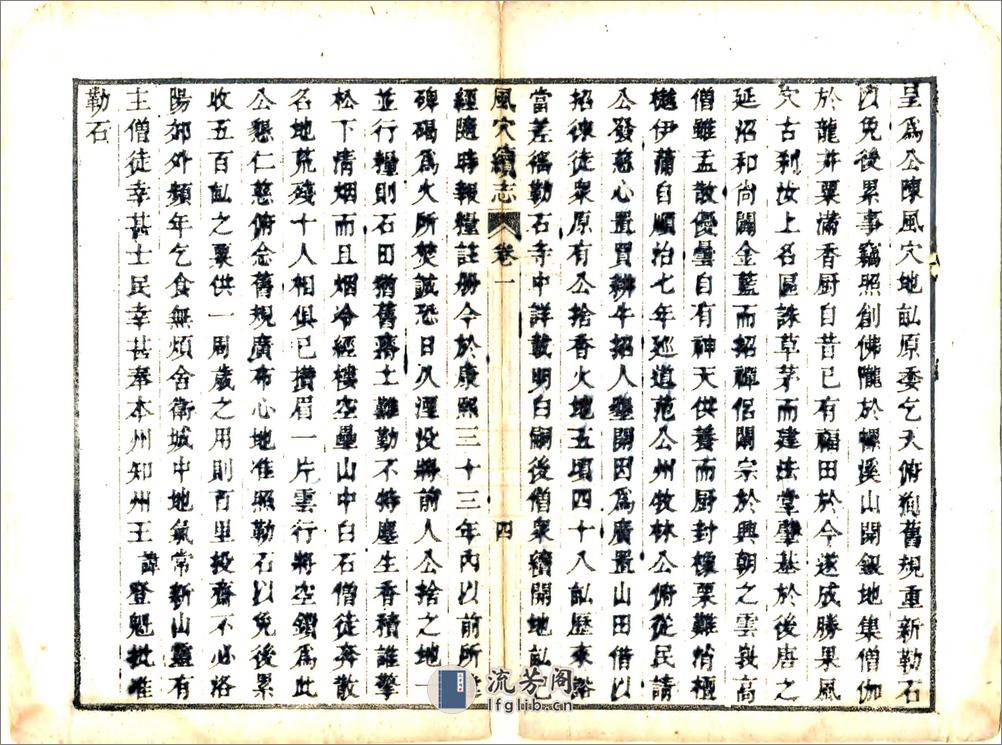 呈爲公陳風穴地畝原委乞天俯循舊規重新勒石
以免後累事竊照創佛隴於螺溪山開銀地集僧伽
於龍井粟滿香厨自昔已有福田於今遂成勝果風
穴古刹汝上名區誅草茅而建法堂肇基於後唐之
延沼和尚闢金藍而招禪侶闡宗於興朝之雲峩高
僧雖盂散優曇自有神天供養而厨封橡栗難悄極
樾伊蒲自順治七年巡道范公州牧林公俯從民請
公發慈心置買耕牛招人墾開因爲廣置山田借以
招徠徒衆原有公捨香火地五頃四十八畝歷來豁
當差徭勒石寺中詳載明白嗣後僧衆續開地畝已
風穴續志 卷一 四
經隨時報糧註册今於康熙三十三年內以前所豎
碑碣爲火所焚誠恐日久湮没將前人公捨之地一
並行糧則石田猶舊瘠土難勤不特塵生香積誰擎
松下清烟而且烟冷經樓空壘山中白石僧徒奔散
名地荒殘十人相俱已攢眉一片雲行將空鎖爲此
公懇仁慈俯念舊規廣布心地准照勒石以免後累
收五百畝之粟供一周歲之用則百里投齋不必洛
陽郊外頻年乞食無煩舍衛城中地氣常新山靈有
主僧徒幸甚士民幸甚奉本州知州王 諱登魁批准
勒石
流芳阁
lfglib.cn